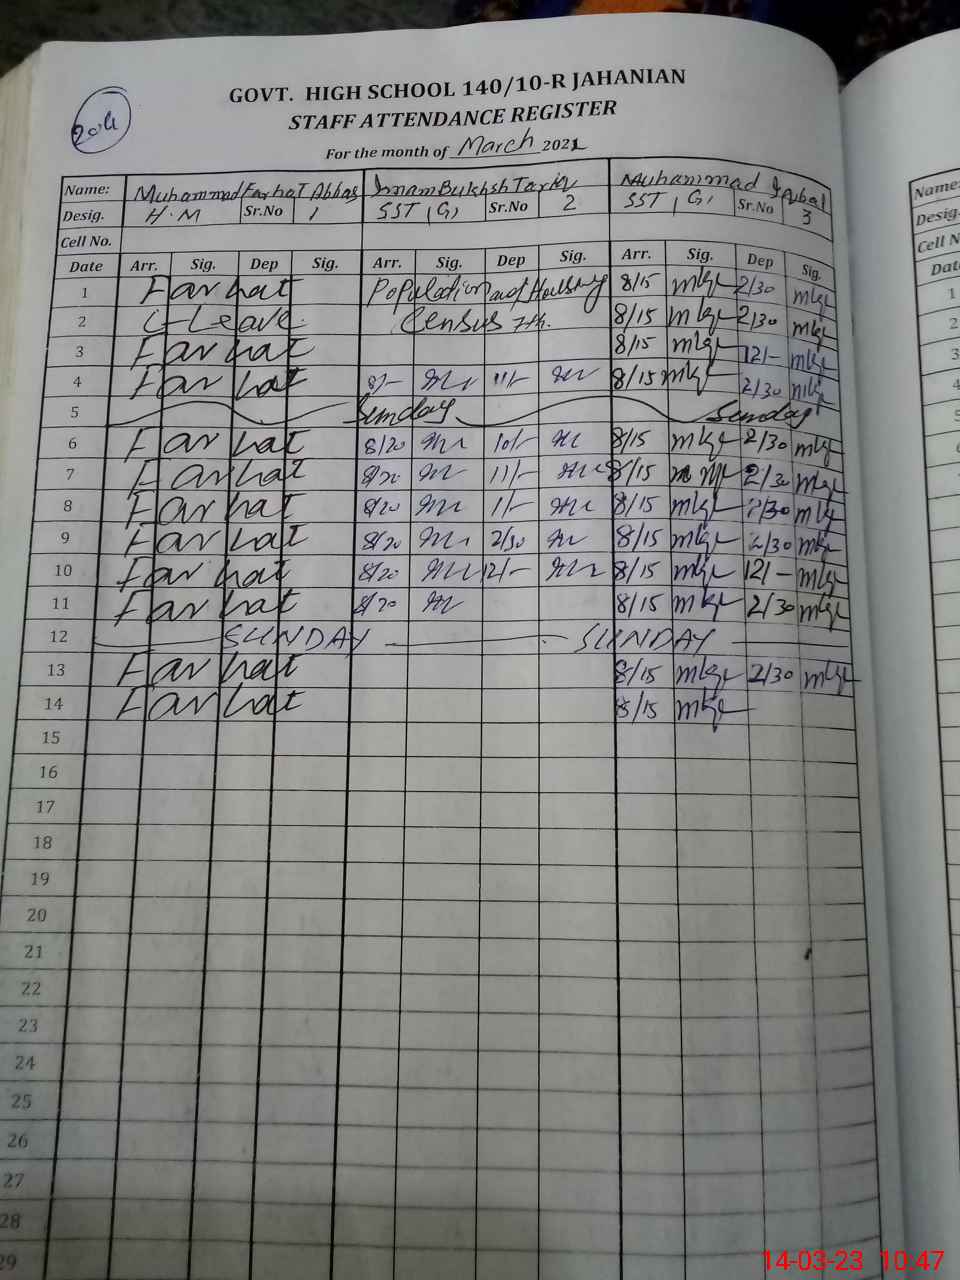 GOVT. HIGH SCHOOL 140/10-R JAHANIAN
STAFF ATTENDANCE REGISTER
For the month of March 2021
Name: Muhammad Farhat Abbas Imam Bukhsh Tariq Muhammad Iqbal Name:
Desig. H.M Sr.No 1 SST (G) Sr.No 2 SST (G) Sr.No 3 Desig.
Cell No. Cell N
Date Arr. Sig. Dep Sig. Arr. Sig. Dep Sig. Arr. Sig. Dep Sig. Dat
1 Farhat Population and Housing 8/15 mkge 2/30 mkge 1
2 C-Leave Census 7th. 8/15 mkge 2/30 mkge 2
3 Farhat 8/15 mkge 12/- mkge 3
4 Farhat 8/- 11/- 8/15 mkge 2/30 mkge 4
5 Sunday Sunday 5
6 Farhat 8/20 10/- 8/15 mkge 2/30 mkge
7 Farhat 8/20 11/- 8/15 2/30 mkge
8 Farhat 8/20 1/- 8/15 mkge 2/30 mkge
9 Farhat 8/20 2/30 8/15 mkge 2/30 mkge
10 Farhat 8/20 12/- 8/15 mkge 12/- mkge
11 Farhat 8/20 8/15 mkge 2/30 mkge
12 SUNDAY SUNDAY
13 Farhat 8/15 mkge 2/30 mkge
14 Farhat 8/15 mkge
15
16
17
18
19
20
21
22
23
24
25
26
27
28
29
14-03-23 10:47